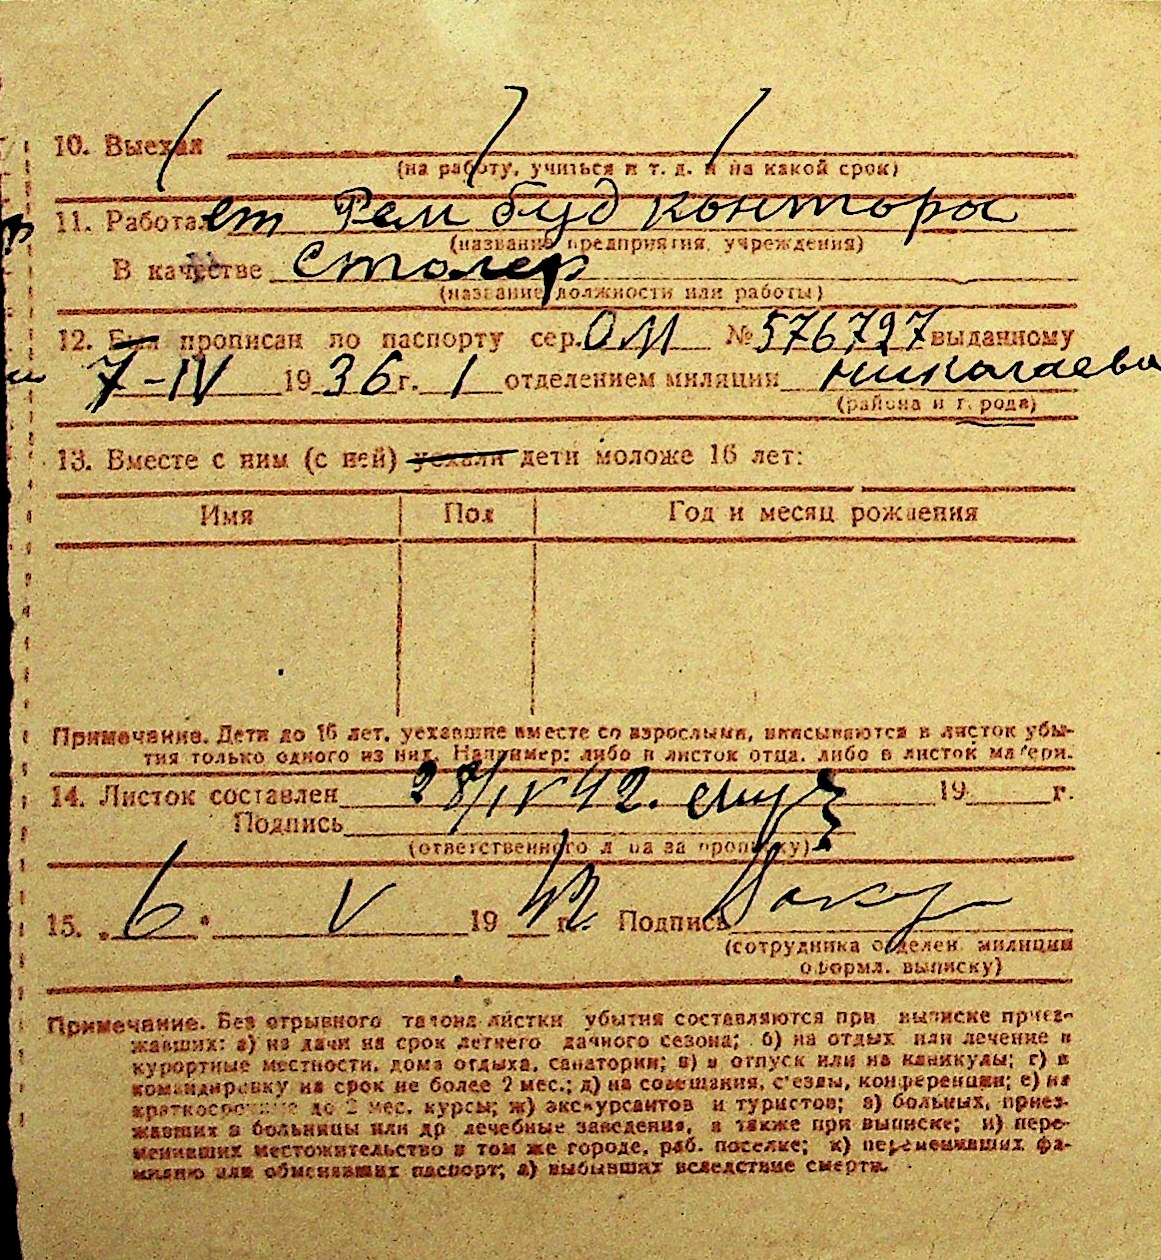 10. Выехал
(на работу, учиться и т. д. и на какой срок)
11. Работает Рем буд конторы
(название предприятия, учреждения)
В качестве столер
(название должности или работы)
12. Был прописан по паспорту сер. ОМ № 576727 выданному
7-IV 1936 г. 1 отделением милиции Николаева
(района и города)
13. Вместе с ним (с ней) уехали дети моложе 16 лет:
Имя Пол Год и месяц рождения
Примечание. Дети до 16 лет, уехавшие вместе со взрослыми, вписываются в листок убы-
тия только одного из них. Например: либо в листок отца, либо в листок матери.
14. Листок составлен 28/IV 42. 19 г.
Подпись
(ответственного лица за прописку)
15. „6" V 1942 г. Подпись
(сотрудника отделен. милиции
оформл. выписку)
Примечание. Без отрывного талона листки убытия составляются при выписке приез-
жавших: а) на дачи на срок летнего дачного сезона; б) на отдых или лечение в
курортные местности, дома отдыха, санатории; в) в отпуск или на каникулы; г) в
командировку на срок не более 2 мес.; д) на совещания, с'езды, конференции; е) на
краткосрочные до 2 мес. курсы; ж) экскурсантов и туристов; з) больных, приез-
жавших в больницы или др лечебные заведения, а также при выписке; и) пере-
менивших местожительство в том же городе, раб. поселке; к) переменивших фа-
милию или обменявших паспорт; л) выбывших вследствие смерти.